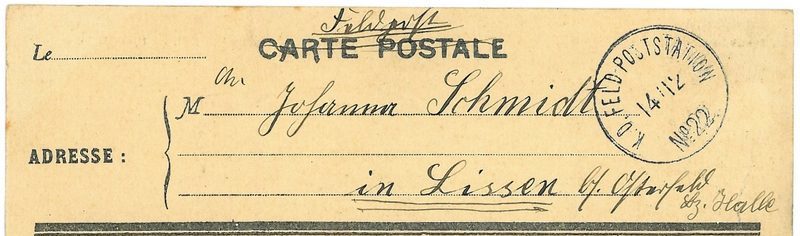 Feldpost
CARTE POSTALE
Le
An
M Johanna Schmidt
ADRESSE :
in Lissen b/. Osterfeld
Bz. Halle
K.D. FELD-POSTSTATION
14/12
No 22